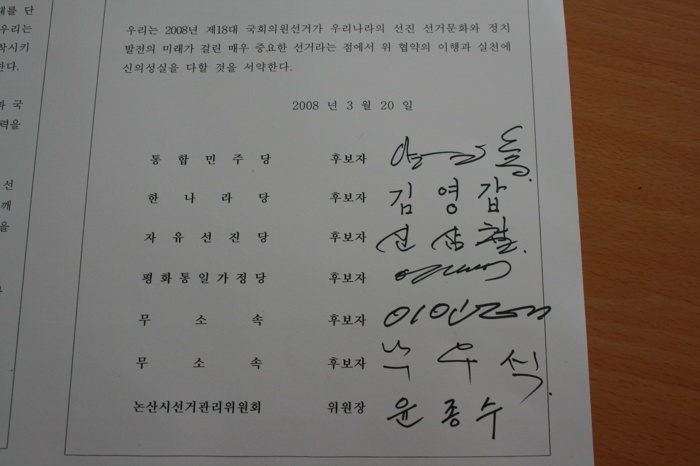 를 단
우리는
착시키
한다.
과 국
력을
선
깨
을
우리는 2008년 제18대 국회의원선거가 우리나라의 선진 선거문화와 정치
발전의 미래가 걸린 매우 중요한 선거라는 점에서 위 협약의 이행과 실천에
신의성실을 다할 것을 서약한다.
2008 년 3 월 20 일
통합민주당 후보자
한나라당 후보자 김영갑
자유선진당 후보자 신삼철
평화통일가정당 후보자
무소속 후보자 이인제
무소속 후보자
논산시선거관리위원회 위원장 윤종수